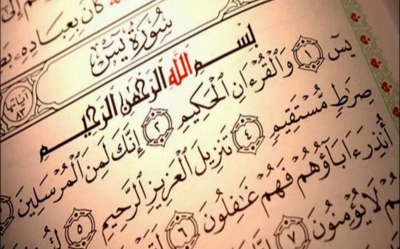 كَانَ بِعِبَادِهِ
سُورَةُ يسٓ
ءاياتها ٨٣
بِسْمِ اللَّهِ الرَّحْمَٰنِ الرَّحِيمِ
يسٓ ١ وَالْقُرْءَانِ الْحَكِيمِ ٢ إِنَّكَ لَمِنَ الْمُرْسَلِينَ
صِرَٰطٍ مُّسْتَقِيمٍ ٤ تَنزِيلَ الْعَزِيزِ الرَّحِيمِ ٥
أُنذِرَ ءَابَآؤُهُمْ فَهُمْ غَٰفِلُونَ ٦
لَا يُؤْمِنُونَ ٧